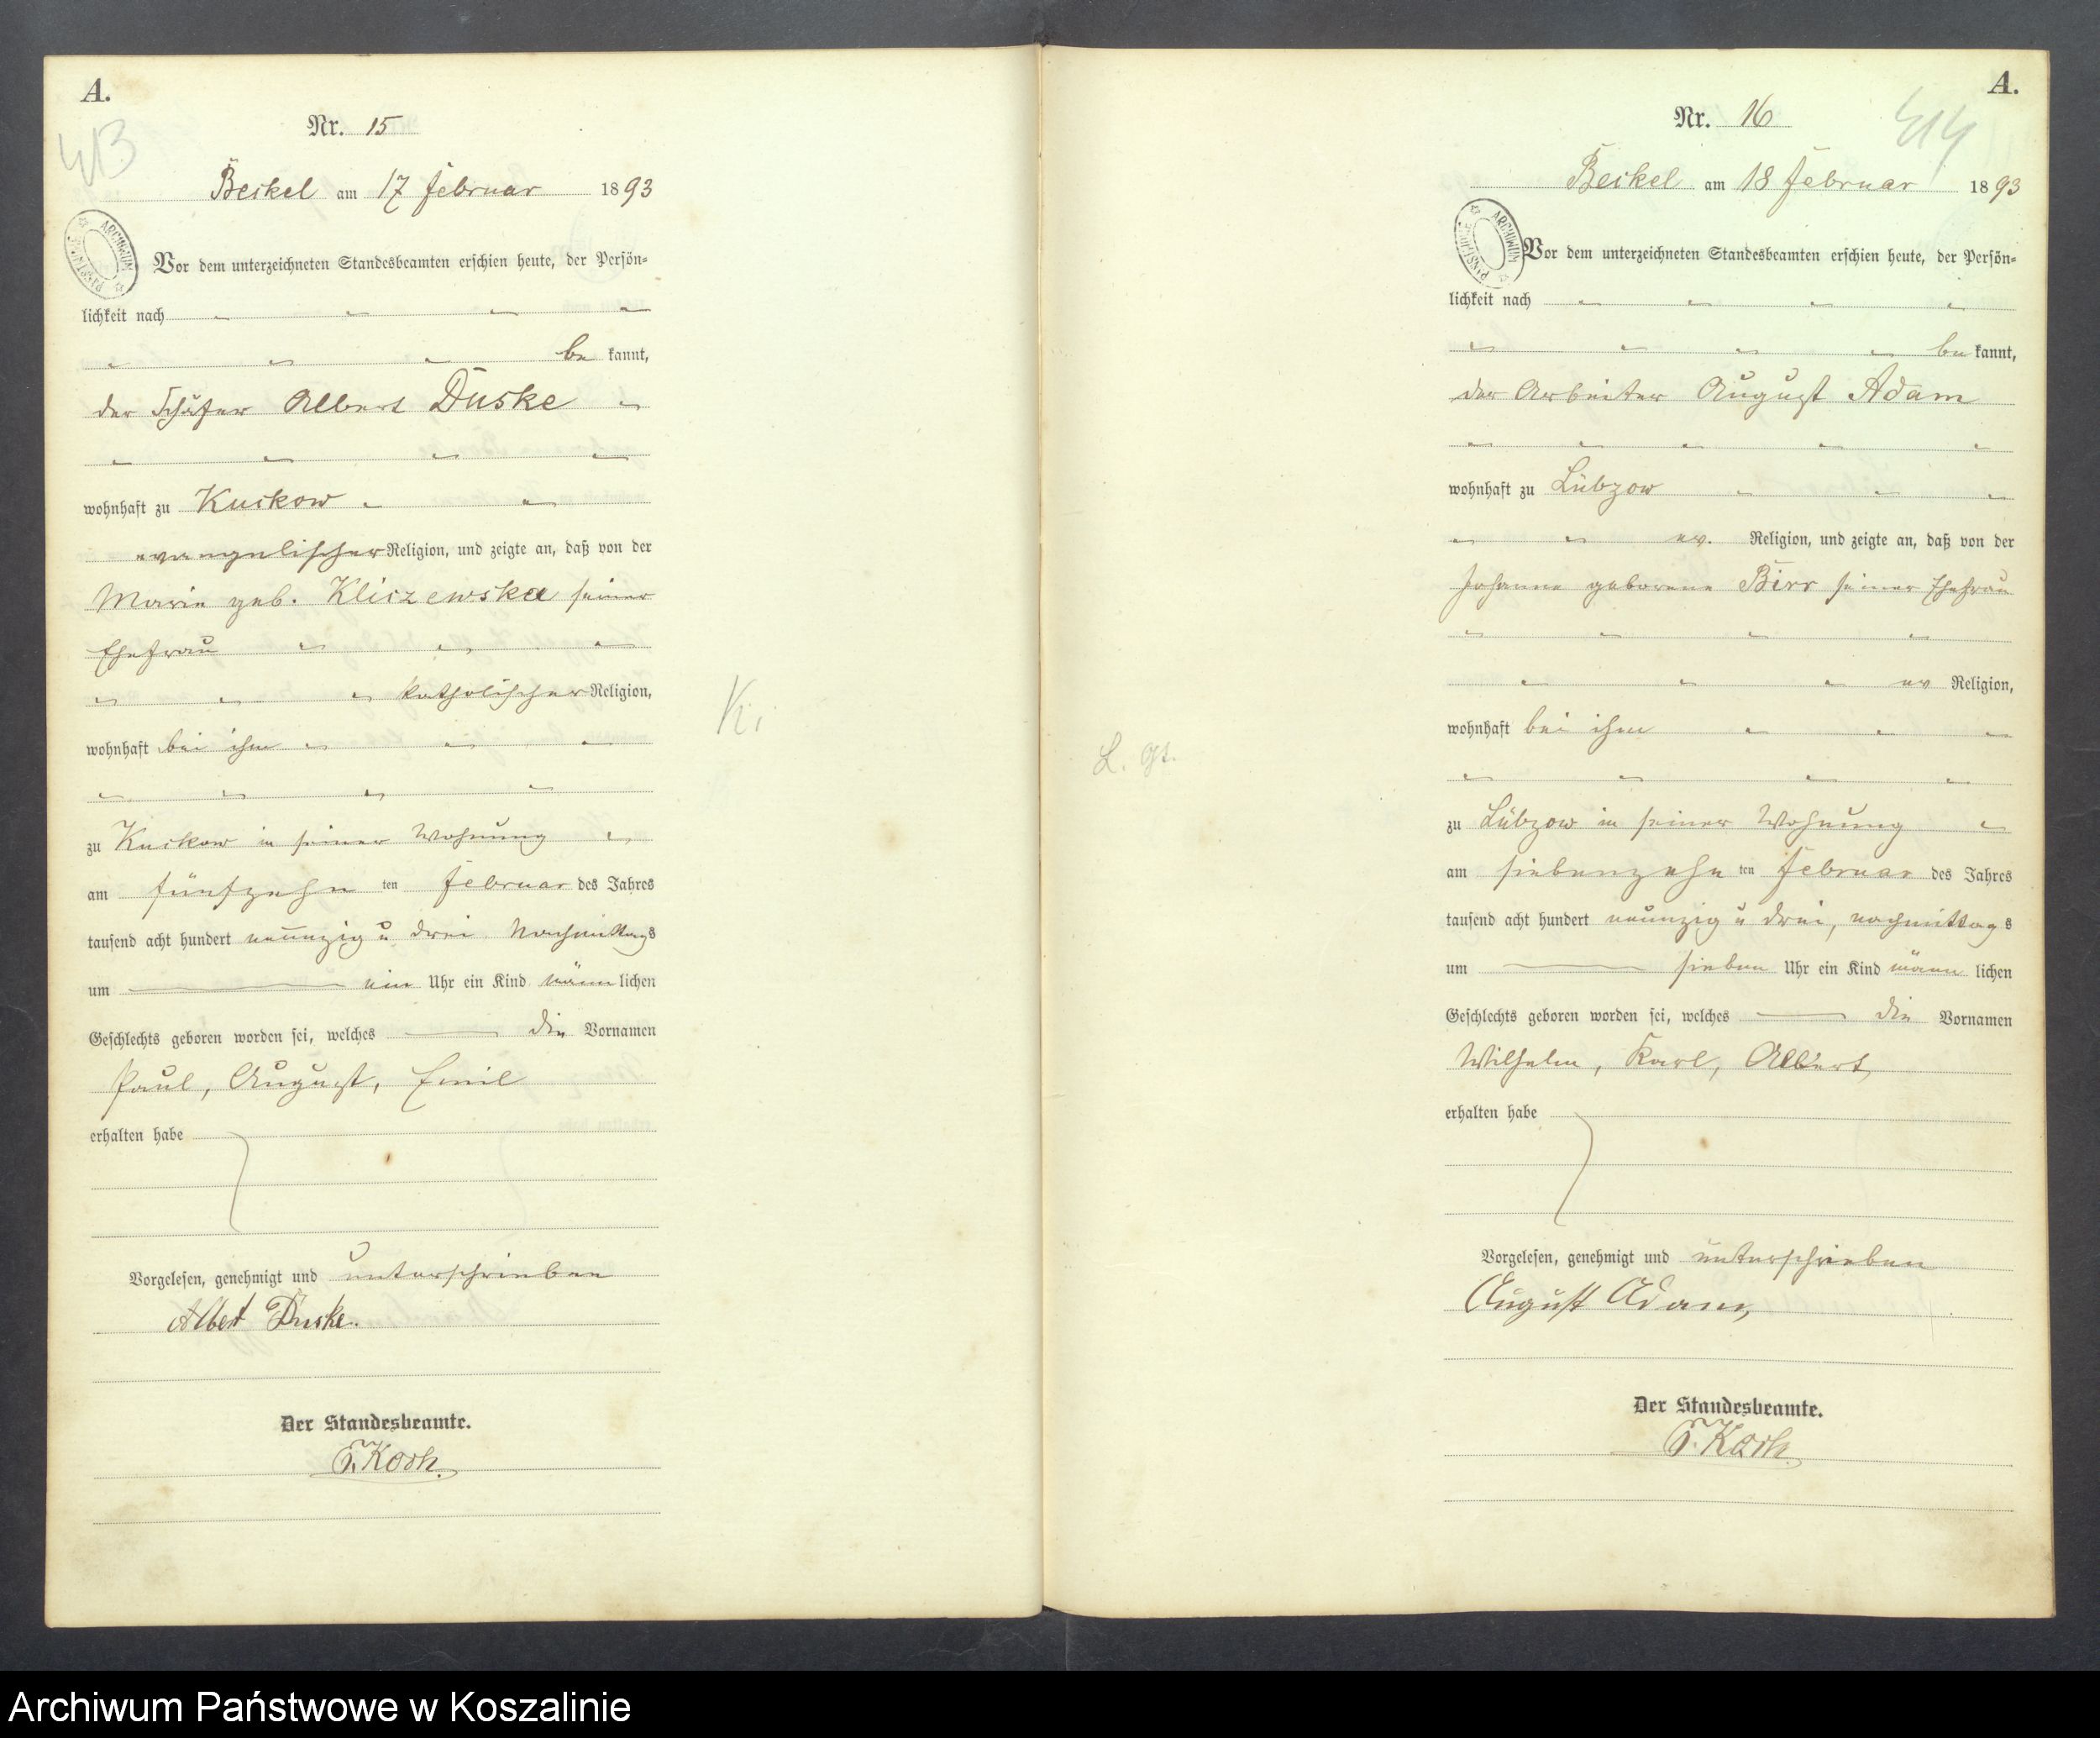 A.
413
Nr. 15
Beckel am 17 Februar 1893
ARCHIWUM PAŃSTWOWE
Vor dem unterzeichneten Standesbeamten erschien heute, der Persön-
lichkeit nach
be kannt,
der Schäfer Albert Duske
wohnhaft zu Kuckow
evangelischer Religion, und zeigte an, daß von der
Marie geb. Kliczewska seiner
Ehefrau
katholischer Religion,
wohnhaft bei ihm
zu Kuckow in seiner Wohnung
am fünfzehn ten Februar des Jahres
tausend acht hundert neunzig u drei Nachmittags
um ein Uhr ein Kind männlichen
Geschlechts geboren worden sei, welches die Vornamen
Paul, August, Emil
erhalten habe
Vorgelesen, genehmigt und unterschrieben
Albert Duske.
Der Standesbeamte.
Koch.
K.
A.
414
Nr. 16
Beckel am 18 Februar 1893
ARCHIWUM PAŃSTWOWE
Vor dem unterzeichneten Standesbeamten erschien heute, der Persön-
lichkeit nach
be kannt,
der Arbeiter August Adam
wohnhaft zu Lübzow
ev. Religion, und zeigte an, daß von der
Johanne geborene Birr seiner Ehefrau
ev Religion,
wohnhaft bei ihm
L. Gt.
zu Lübzow in seiner Wohnung
am siebenzehn ten Februar des Jahres
tausend acht hundert neunzig u drei, nachmittags
um sieben Uhr ein Kind männ lichen
Geschlechts geboren worden sei, welches die Vornamen
Wilhelm, Karl, Albert
erhalten habe
Vorgelesen, genehmigt und unterschrieben
August Adam,
Der Standesbeamte.
Koch.
Archiwum Państwowe w Koszalinie